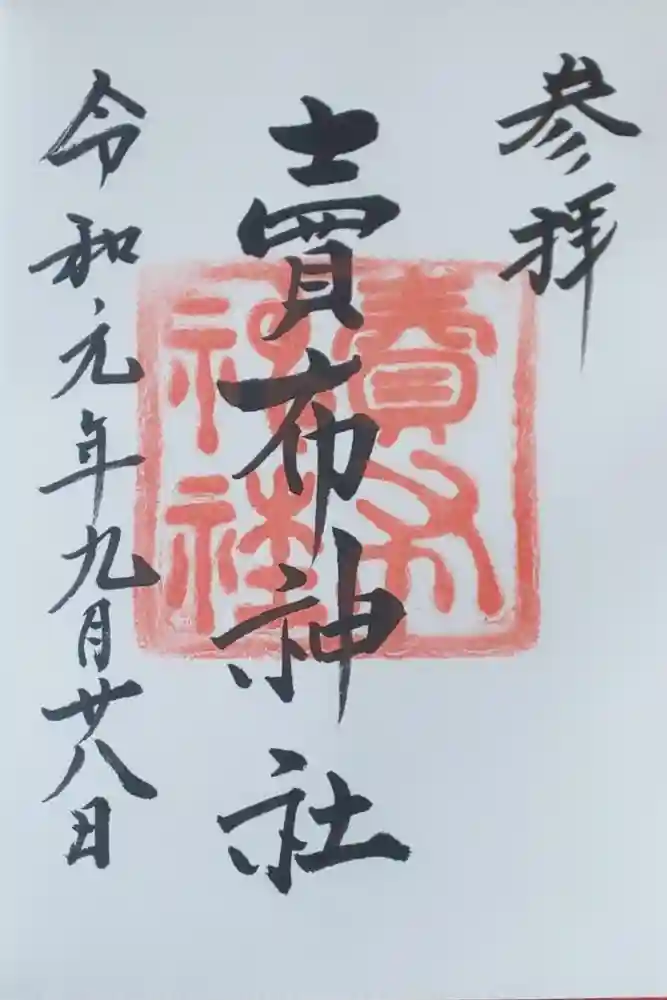 参拝
賣布神社
令和元年九月廿八日
賣布
神社